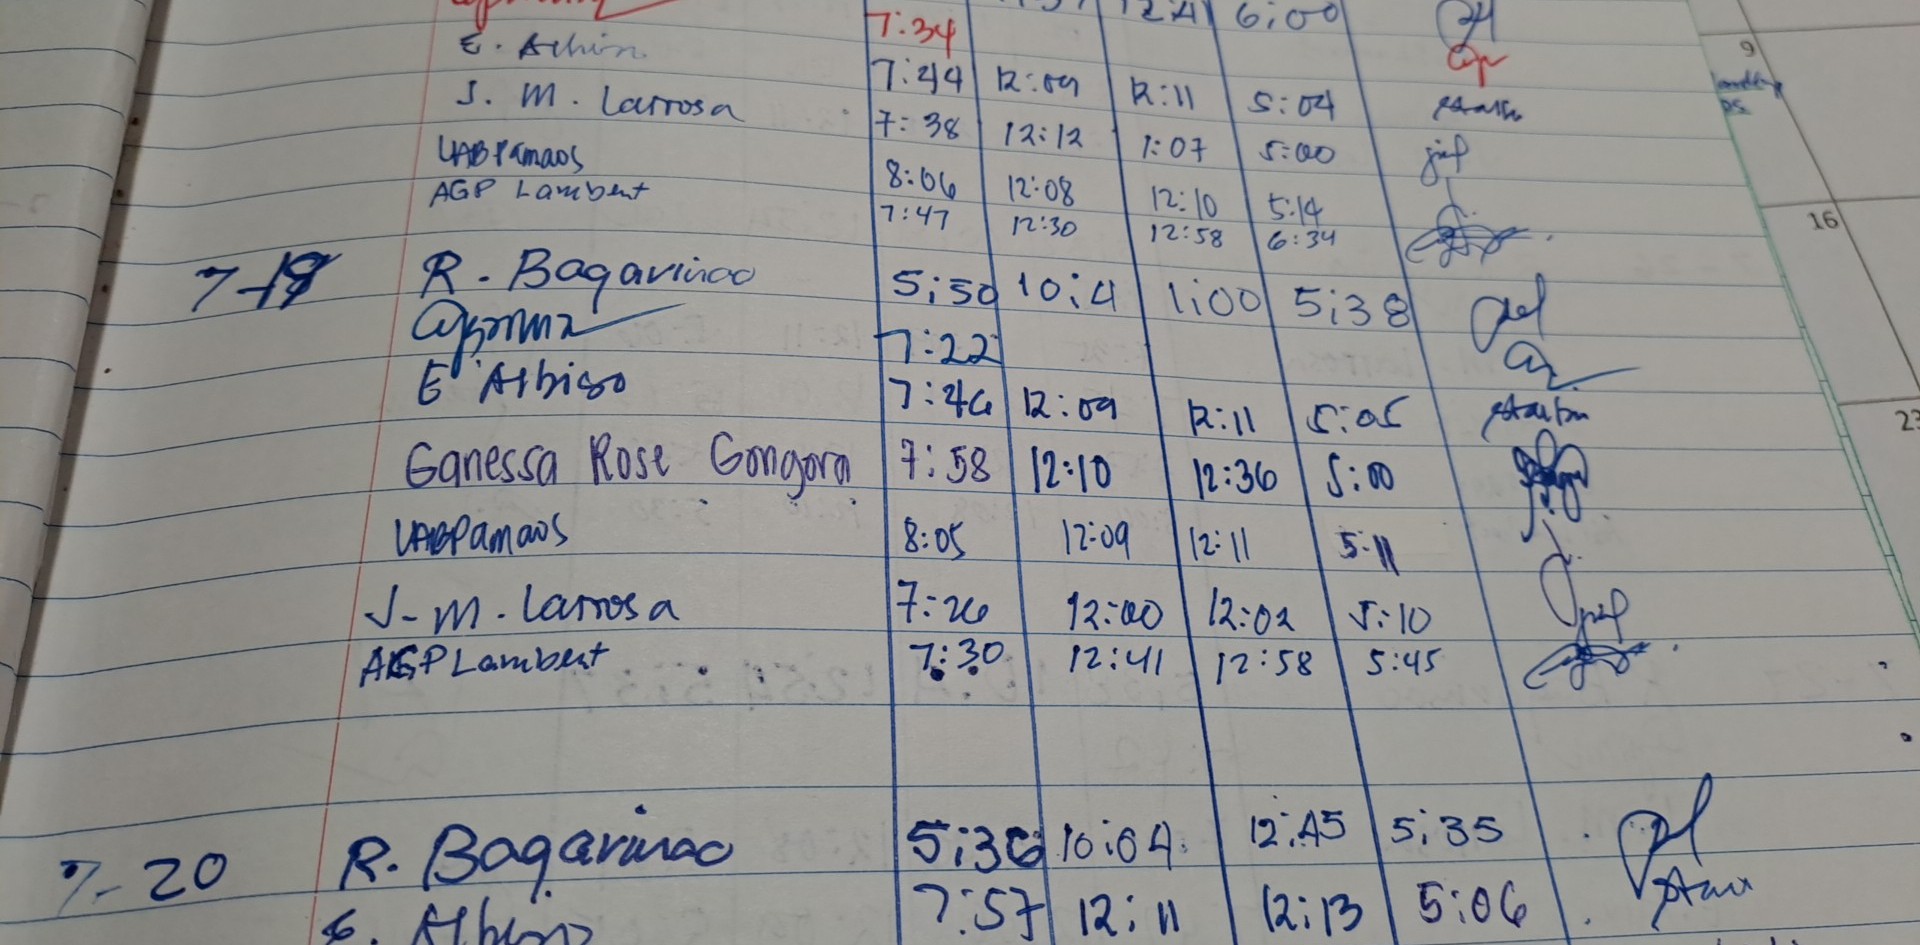 6:00
7:34
E. Albiso 7:44 12:09 12:11 5:04
J. M. Larrosa 7:38 12:12 1:07 5:00
UABPamaos 8:06 12:08 12:10 5:14
AGP Lambert 7:47 12:30 12:58 6:34
7-19 R. Bagarinao 5:50 10:4 1:00 5:38
7:22
E Albiso 7:46 12:09 12:11 5:05
Ganessa Rose Gongora 7:58 12:10 12:36 5:00
UABPamaos 8:05 12:09 12:11 5:11
J. M. Larrosa 7:26 12:00 12:02 5:10
AGP Lambert 7:30 12:41 12:58 5:45
7-20 R. Bagarinao 5:36 10:04 12:45 5:35
E. Albiso 7:57 12:11 12:13 5:06
9
16
23